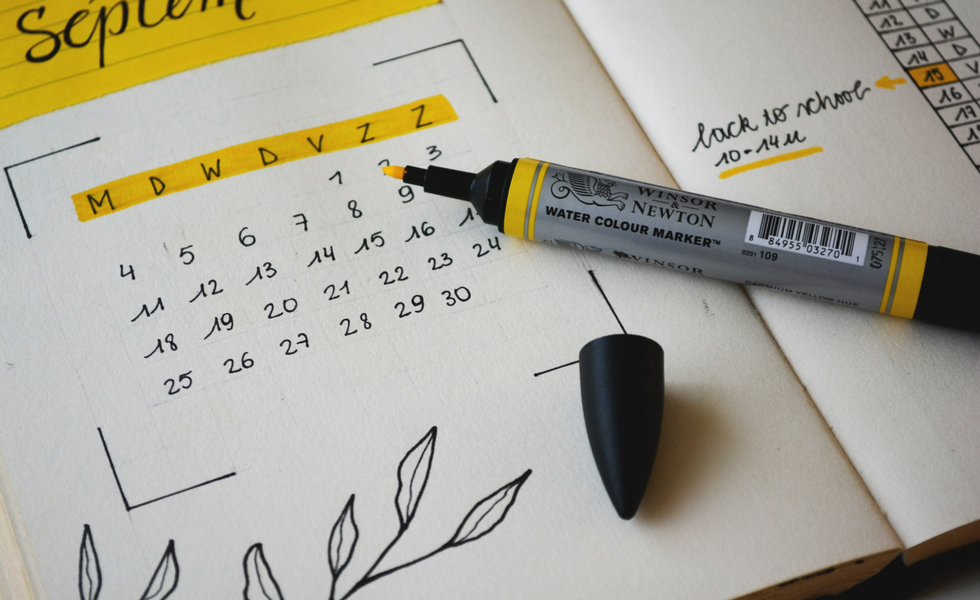 Septem
M D W D V Z Z
1 2 3
4 5 6 7 8 9
11 12 13 14 15 16
18 19 20 21 22 23 24
25 26 27 28 29 30
back to school
10-14u
11
12 D
13 W
14 D
15 V
16
17
WINSOR
&
NEWTON
WATER COLOUR MARKER™
8 84955 03270 1
0201 109
WINSOR
CADMIUM YELLOW HUE